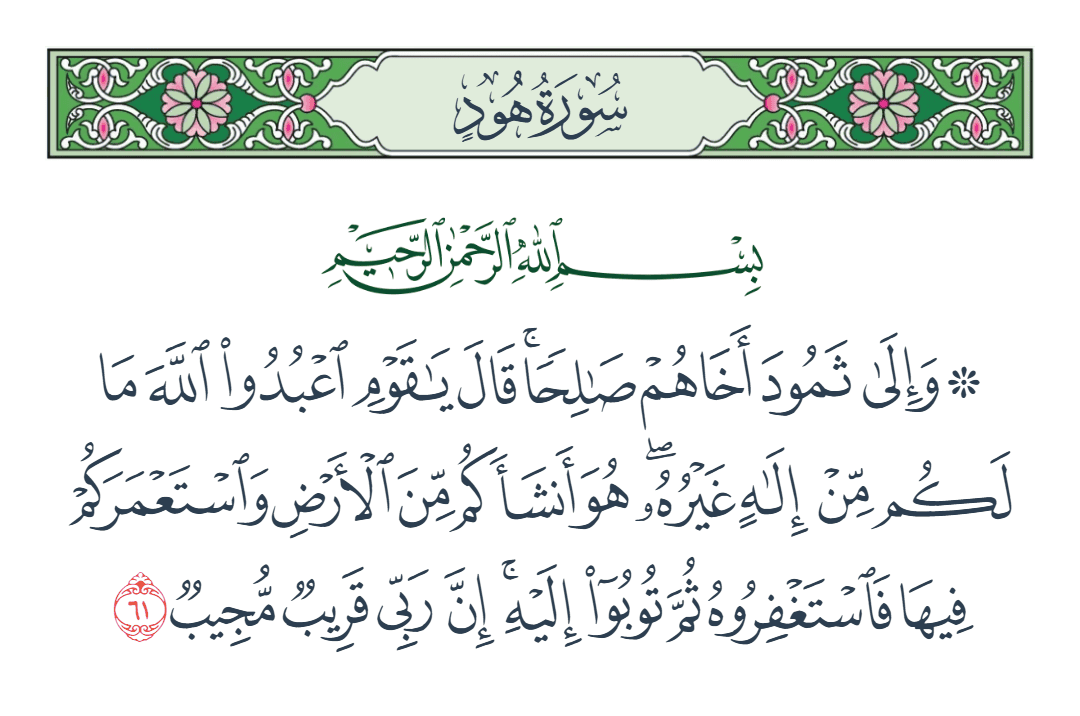 سُورَةُ هُودٍ
بِسْمِ ٱللَّهِ ٱلرَّحْمَٰنِ ٱلرَّحِيمِ
۞ وَإِلَىٰ ثَمُودَ أَخَاهُمْ صَٰلِحًاۚ قَالَ يَٰقَوْمِ ٱعْبُدُوا۟ ٱللَّهَ مَا
لَكُم مِّنْ إِلَٰهٍ غَيْرُهُۥۖ هُوَ أَنشَأَكُم مِّنَ ٱلْأَرْضِ وَٱسْتَعْمَرَكُمْ
فِيهَا فَٱسْتَغْفِرُوهُ ثُمَّ تُوبُوٓا۟ إِلَيْهِۚ إِنَّ رَبِّى قَرِيبٌ مُّجِيبٌ ٦١